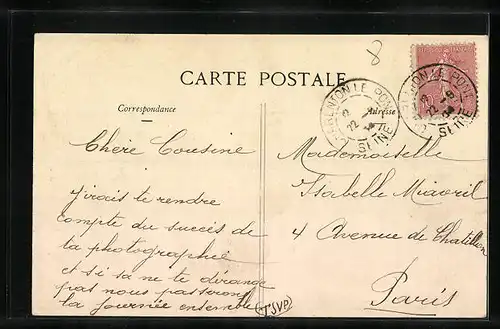 8
CARTE POSTALE
Correspondance
Adresse
CHARENTON LE PONT
SEINE
Chère Cousine
J'irais te rendre
compte du succés de
la photographie
et si sa ne te dérange
pas nous passerons
la journée ensemble
TSVP
Mademoiselle
Isabelle
4 Avenue de Chatillon
Paris